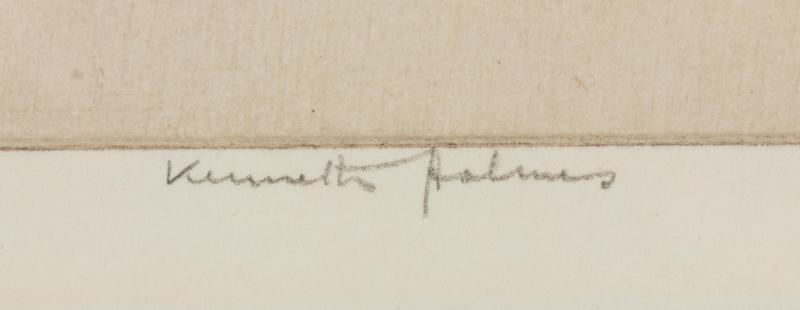 Kenneth Holmes